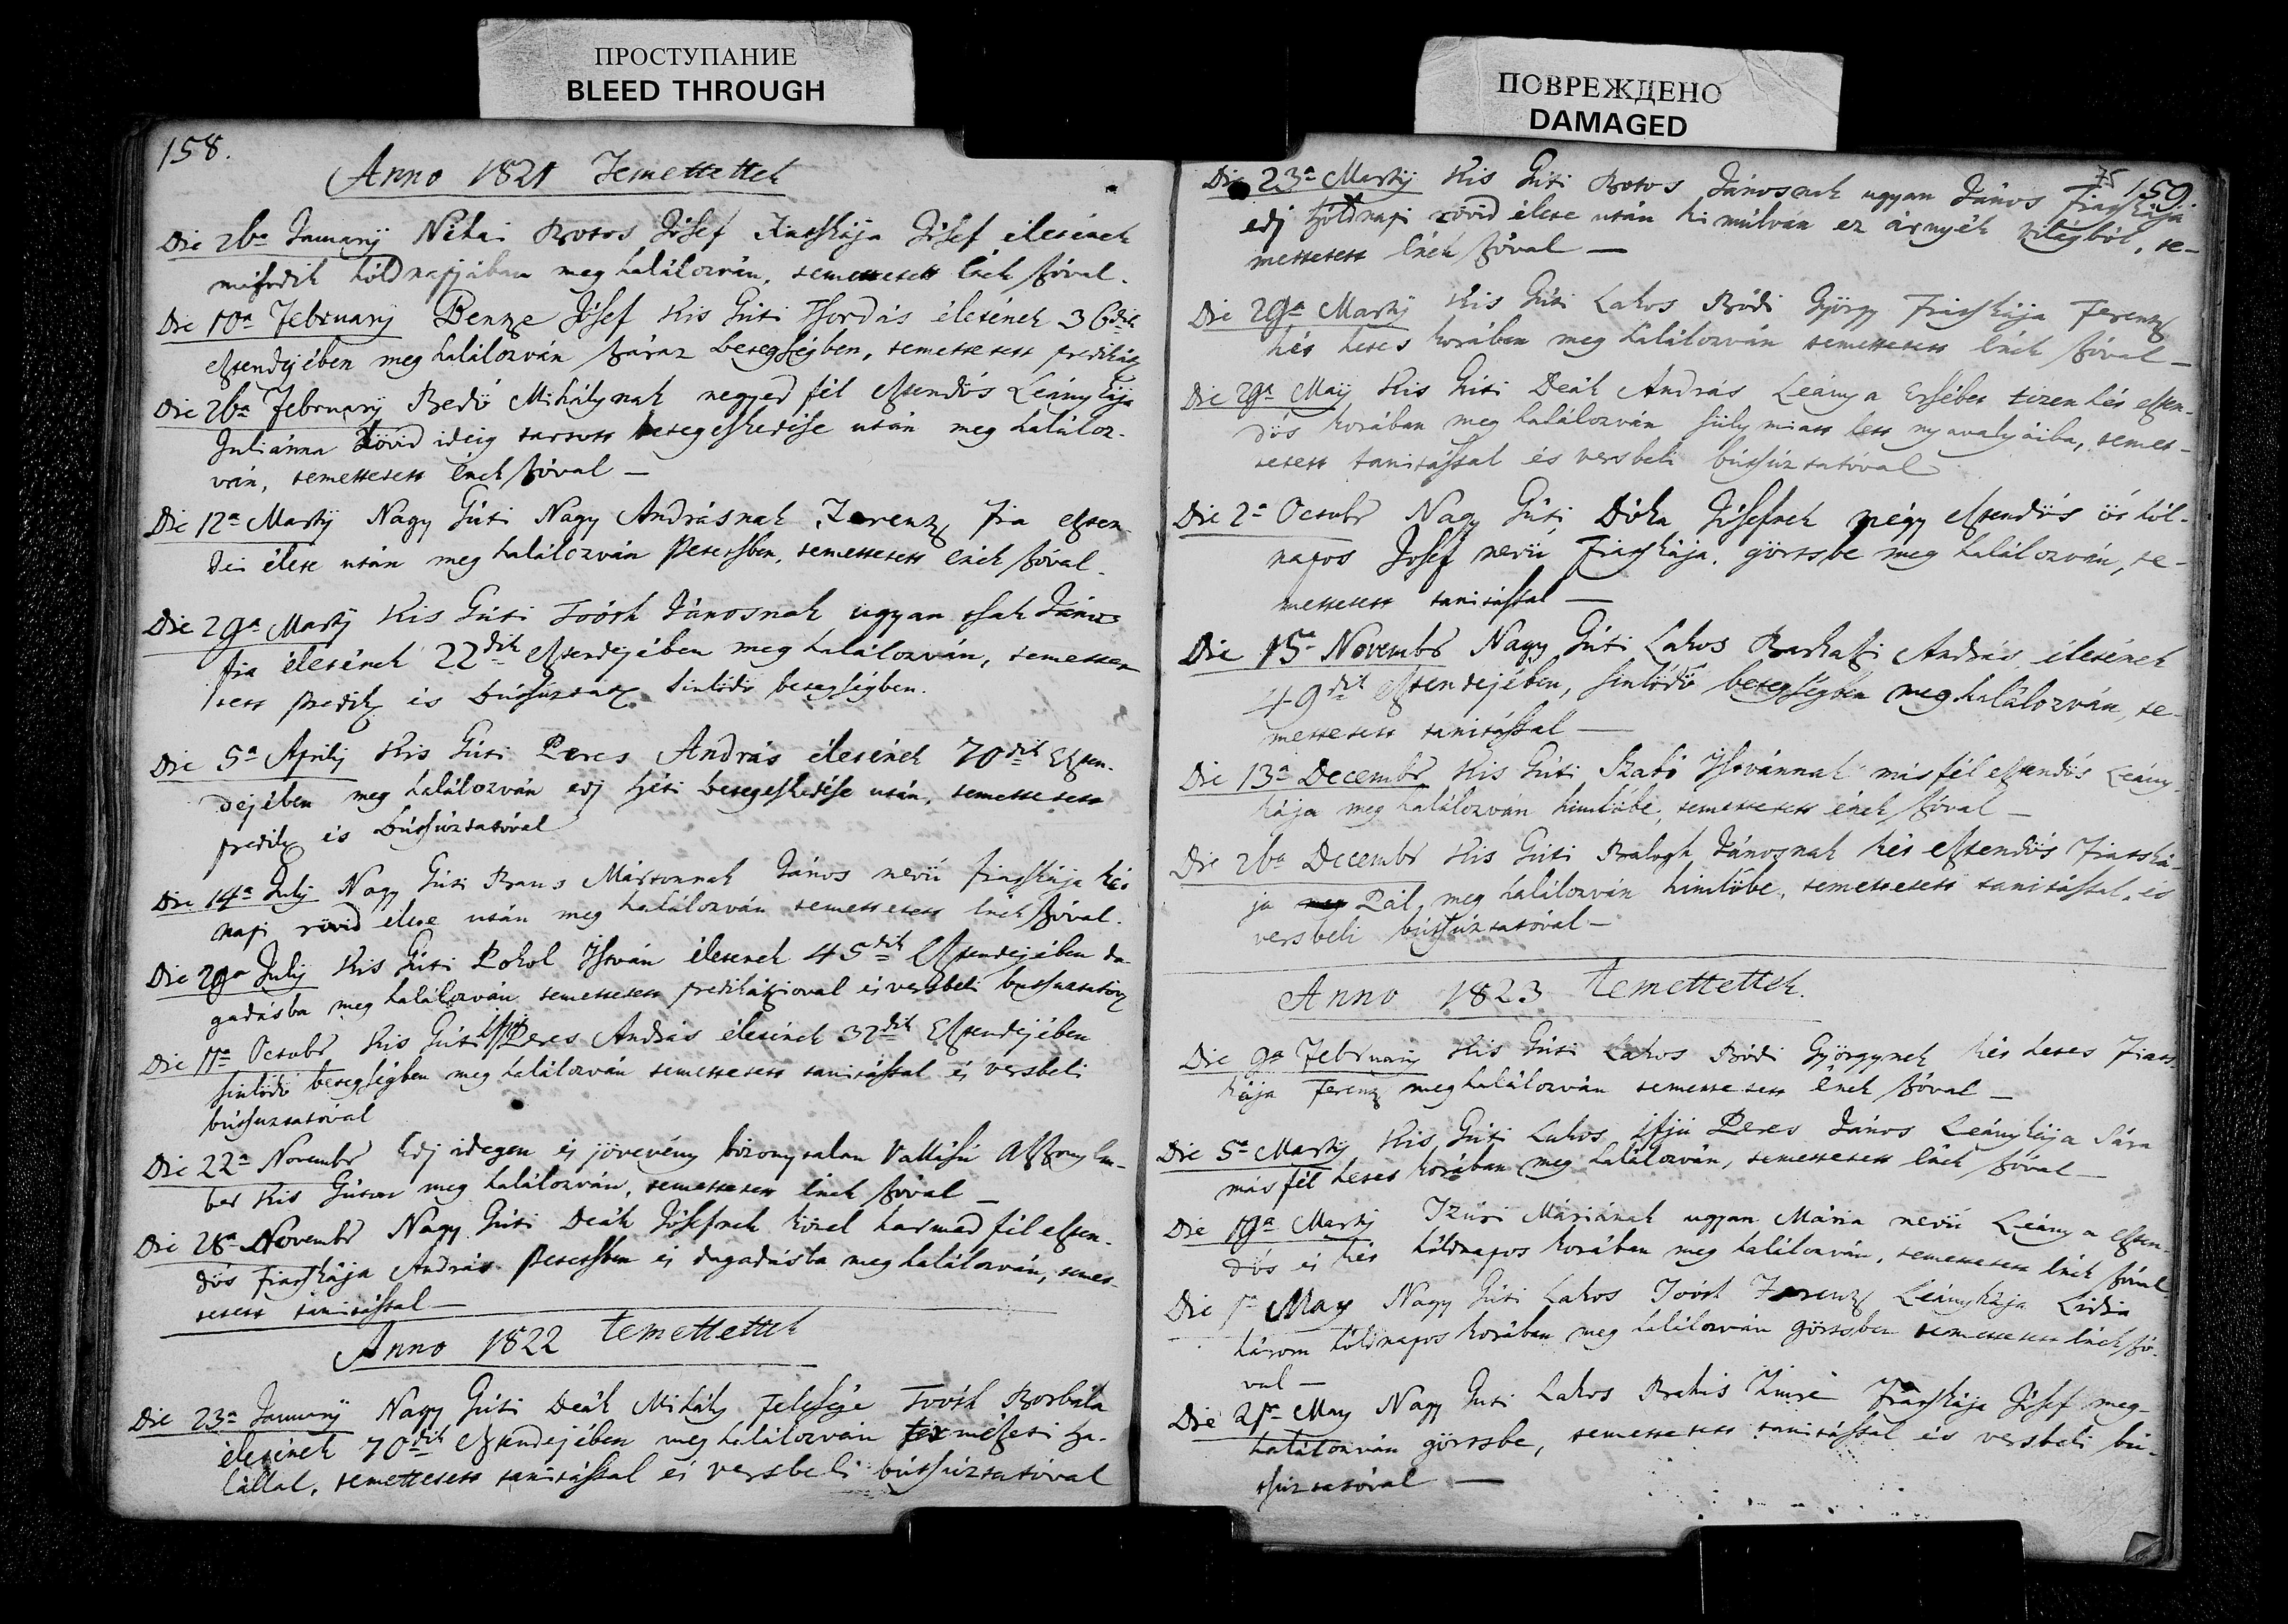 ПРОСТУПАНИЕ
BLEED THROUGH
ПОВРЕЖДЕНО
DAMAGED
158.
Anno 1821 Temettettek
Die 26a Januarij Néhai Botos Jósef Fiatskája Jósef életének
második hóldnapjában meg halálozván, temettetett ének szóval.
Die 10a February Bentze Jósef Kis Gúti Tsordás életének 36dik
esztendejében meg halálozván száraz betegségben, temettetett predikátz
Die 26a February Bedő Mihálynak negyed fél esztendős Leánykája
Juliánna rövid ideig tartott betegeskedése után meg haláloz-
ván, temettetett ének szóval —
Die 12a Martij Nagy Gúti Nagy Andrásnak Ferentz fia eszten
dei élete után meg halálozván Petetsben, temettetett ének szóval.
Die 29a Martij Kis Gúti Toóth Jánosnak ugyan tsak János
fia életének 22dik esztendejében meg halálozván, temettet
tett predik és butsúztatz sinlődő betegségben.
Die 5a Aprilij Kis Gúti Peres András életének 70dik Eszten-
dejében meg halálozván edj héti betegeskedése után, temettetett
predik és butsúztatóval
Die 14a Julij Nagy Gúti Mártonnak János nevü fiatskája két
napi rövid élete után meg halálozván temettetett ének szóval.
Die 29a Julij Kis Gúti Pokol István életenek 45dik Esztendejében da-
gadásba meg halálozván temettetett predikátzioval és versbeli butsuztatóv
Die 11a Octobr Kis Gúti ifjú Peres András életének 32dik Esztendejében
sinlödő betegségben meg halálozván temettetett tanitással és versbeli
bútsuztatóval
Die 22a Novembr Edj idegen és jövevény bizonytalan Vallásu Aszszony Em-
ber Kis Gúton meg halálozván, temettetett ének szóval —
Die 28a Novembr Nagy Gúti Deák Jósefnek közel harmad fél eszten-
dős Fiatskája András Petetsben és dagadásba meg halálozván, temet-
tetett tanitással —
Anno 1822 temettettek
Die 23a Januarij Nagy Gúti Deák Mihály Felesége Toóth Borbála
életének 70dik esztendejében meg halálozván természeti ha-
lállal, temettetett tanitással és versbeli bútsúztatóval
75 159.
Die 23a Martij Kis Gúti Botos Jánosnak ugyan János Fiatskája
edj hóldnapi rövid élete után ki múlván ez árnyék világból, te-
mettetett ének szóval —
Die 29a Martij Kis Gúti Lakos Bódi György Fiatskája Ferentz
hét hetes korában meg halálozván temettetett ének szóval —
Die 29a Maij Kis Gúti Deák András Leánya Ersébet tizenhét eszten-
dős korában meg halálozván süly miatt lett nyavalyáiba, temet-
tetett tanitással és versbeli bútsúztatóval
Die 2a Octobr Nagy Gúti Dóka Jósefnek négy esztendős és hól-
napos Josef nevü Fiatskája. görtsbe meg halálozván, te-
mettetett tanitással —
Die 15a Novembr Nagy Gúti Lakos Barkaszi András életének
49dik esztendejében, sinlődő betegségben meg halálozván, te-
mettetett tanitással —
Die 13a Decembr Kis Gúti Szabó Istvánnak másfél esztendős Leány
kája meg halálozvan himlőbe, temettetett ének szóval —
Die 26a Decembr Kis Gúti Balogh Jánosnak két esztendős Fiatská-
ja Pál, meg halálozván himlőbe, temettetett tanitással, és
versbeli bútsúztatóval —
Anno 1823 temettettek.
Die 9a February Kis Gúti Lakos Bódi Györgynek hét hetes Fiats-
kája Ferentz meg halálozván temettetett ének szóval —
Die 5a Martij Kis Gúti Lakos ifjú Peres János Leánykája Sára
más fél hetes korában meg halálozván, temettetett ének szóval —
Die 19a Martij Máriának ugyan Mária nevü Leánya eszten-
dős és két hóldnapos korában meg halálozván, temettetett ének szóval
Die 1a May Nagy Gúti Lakos Toóth Ferentz Leánykája Lidia
három hóldnapos korában meg halálozván görtsben temettetett ének szó-
val —
Die 21a May Nagy Guti Lakos Imre Fiatskája Jósef meg-
halálozván görtsbe, temettetett tanitással és versbeli bu-
tsúztatóval —